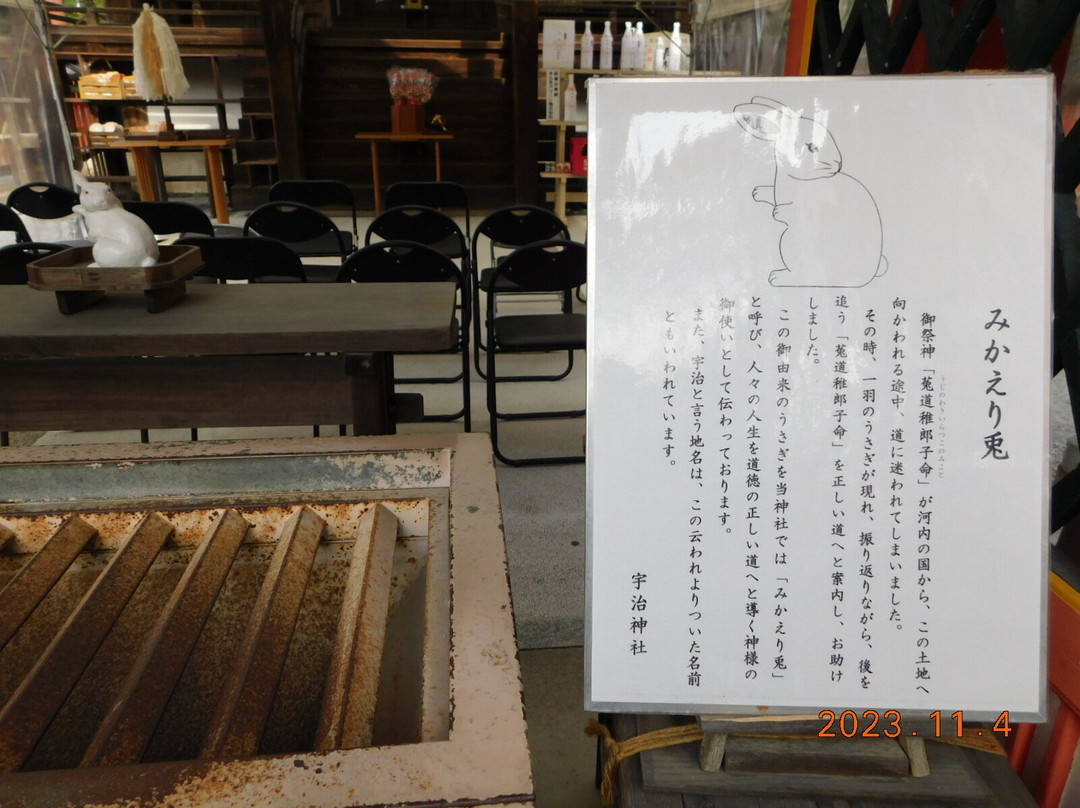 みかえり兎
うじのわきいらつこのみこと
御祭神「菟道稚郎子命」が河内の国から、この土地へ
向かわれる途中、道に迷われてしまいました。
その時、一羽のうさぎが現れ、振り返りながら、後を
追う「菟道稚郎子命」を正しい道へと案内し、お助け
しました。
この御由来のうさぎを当神社では「みかえり兎」
と呼び、人々の人生を道徳の正しい道へと導く神様の
御使いとして伝わっております。
また、宇治と言う地名は、この云われよりついた名前
ともいわれています。
宇治神社
2023.11.4